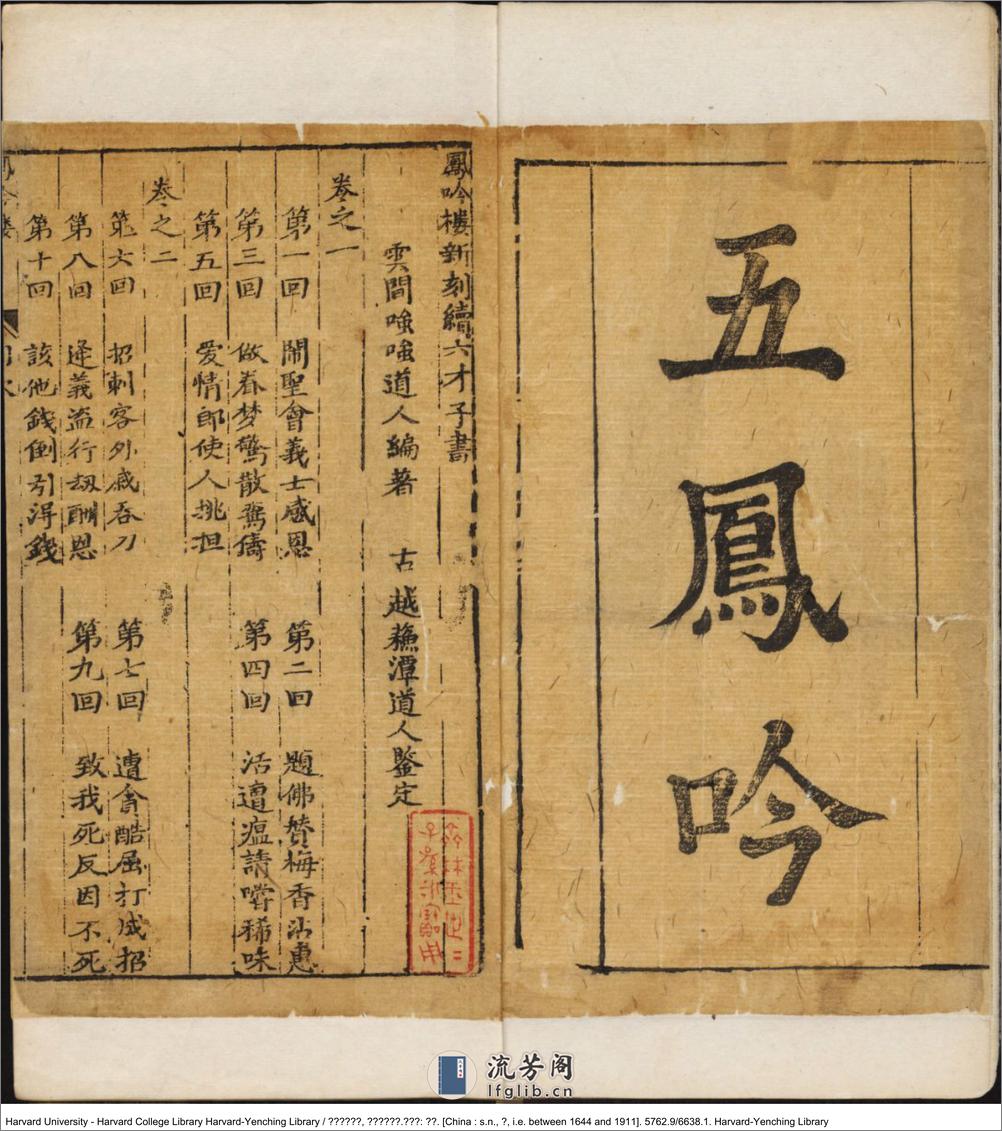 五鳳吟
鳳吟樓新刻續六才子書
雲間嗤嗤道人編著 古越蘓潭道人鑒定
卷之一
第一回 鬧聖會義士感恩 第二回 題佛贊梅香沾惠
第三回 做春梦驚散鴛儔 第四回 活遭瘟請嘗稀味
第五回 爱情郎使人挑担
卷之二
第六回 招刺客外戚吞刀 第七回 遭貪酷屈打成招
第八回 逢義盜行刼酬恩 第九回 致我死反因不死
第十回 該他錢倒引得錢
流芳阁
lfglib.cn
Harvard University - Harvard College Library Harvard-Yenching Library / ??????, ??????.???: ??. [China : s.n., ?, i.e. between 1644 and 1911]. 5762.9/6638.1. Harvard-Yenching Library